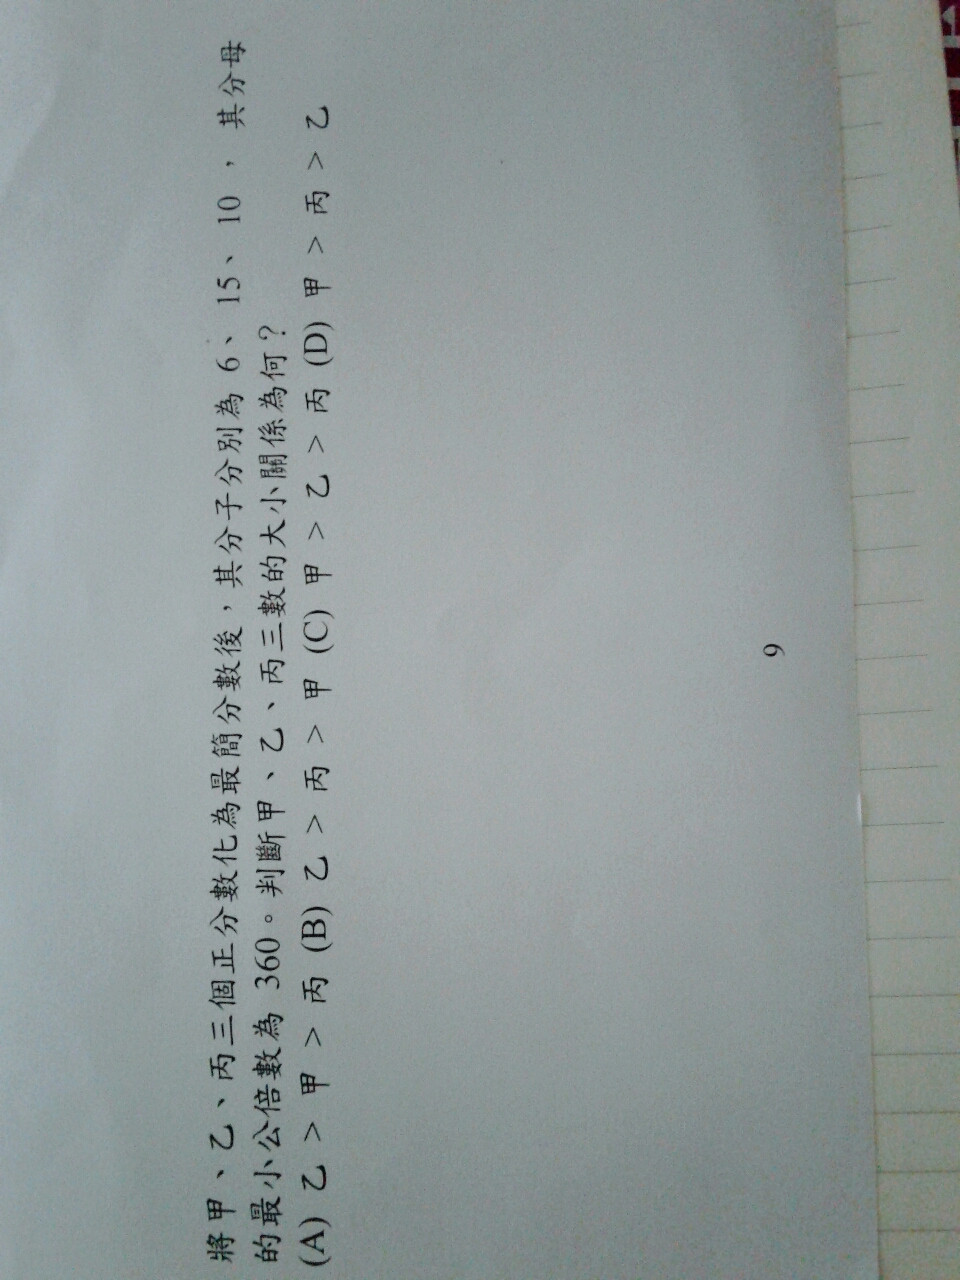 將甲、乙、丙三個正分數化為最簡分數後，其分子分別為 6、15、10，其分母
的最小公倍數為 360。判斷甲、乙、丙三數的大小關係為何？
(A) 乙 > 甲 > 丙 (B) 乙 > 丙 > 甲 (C) 甲 > 乙 > 丙 (D) 甲 > 丙 > 乙
9